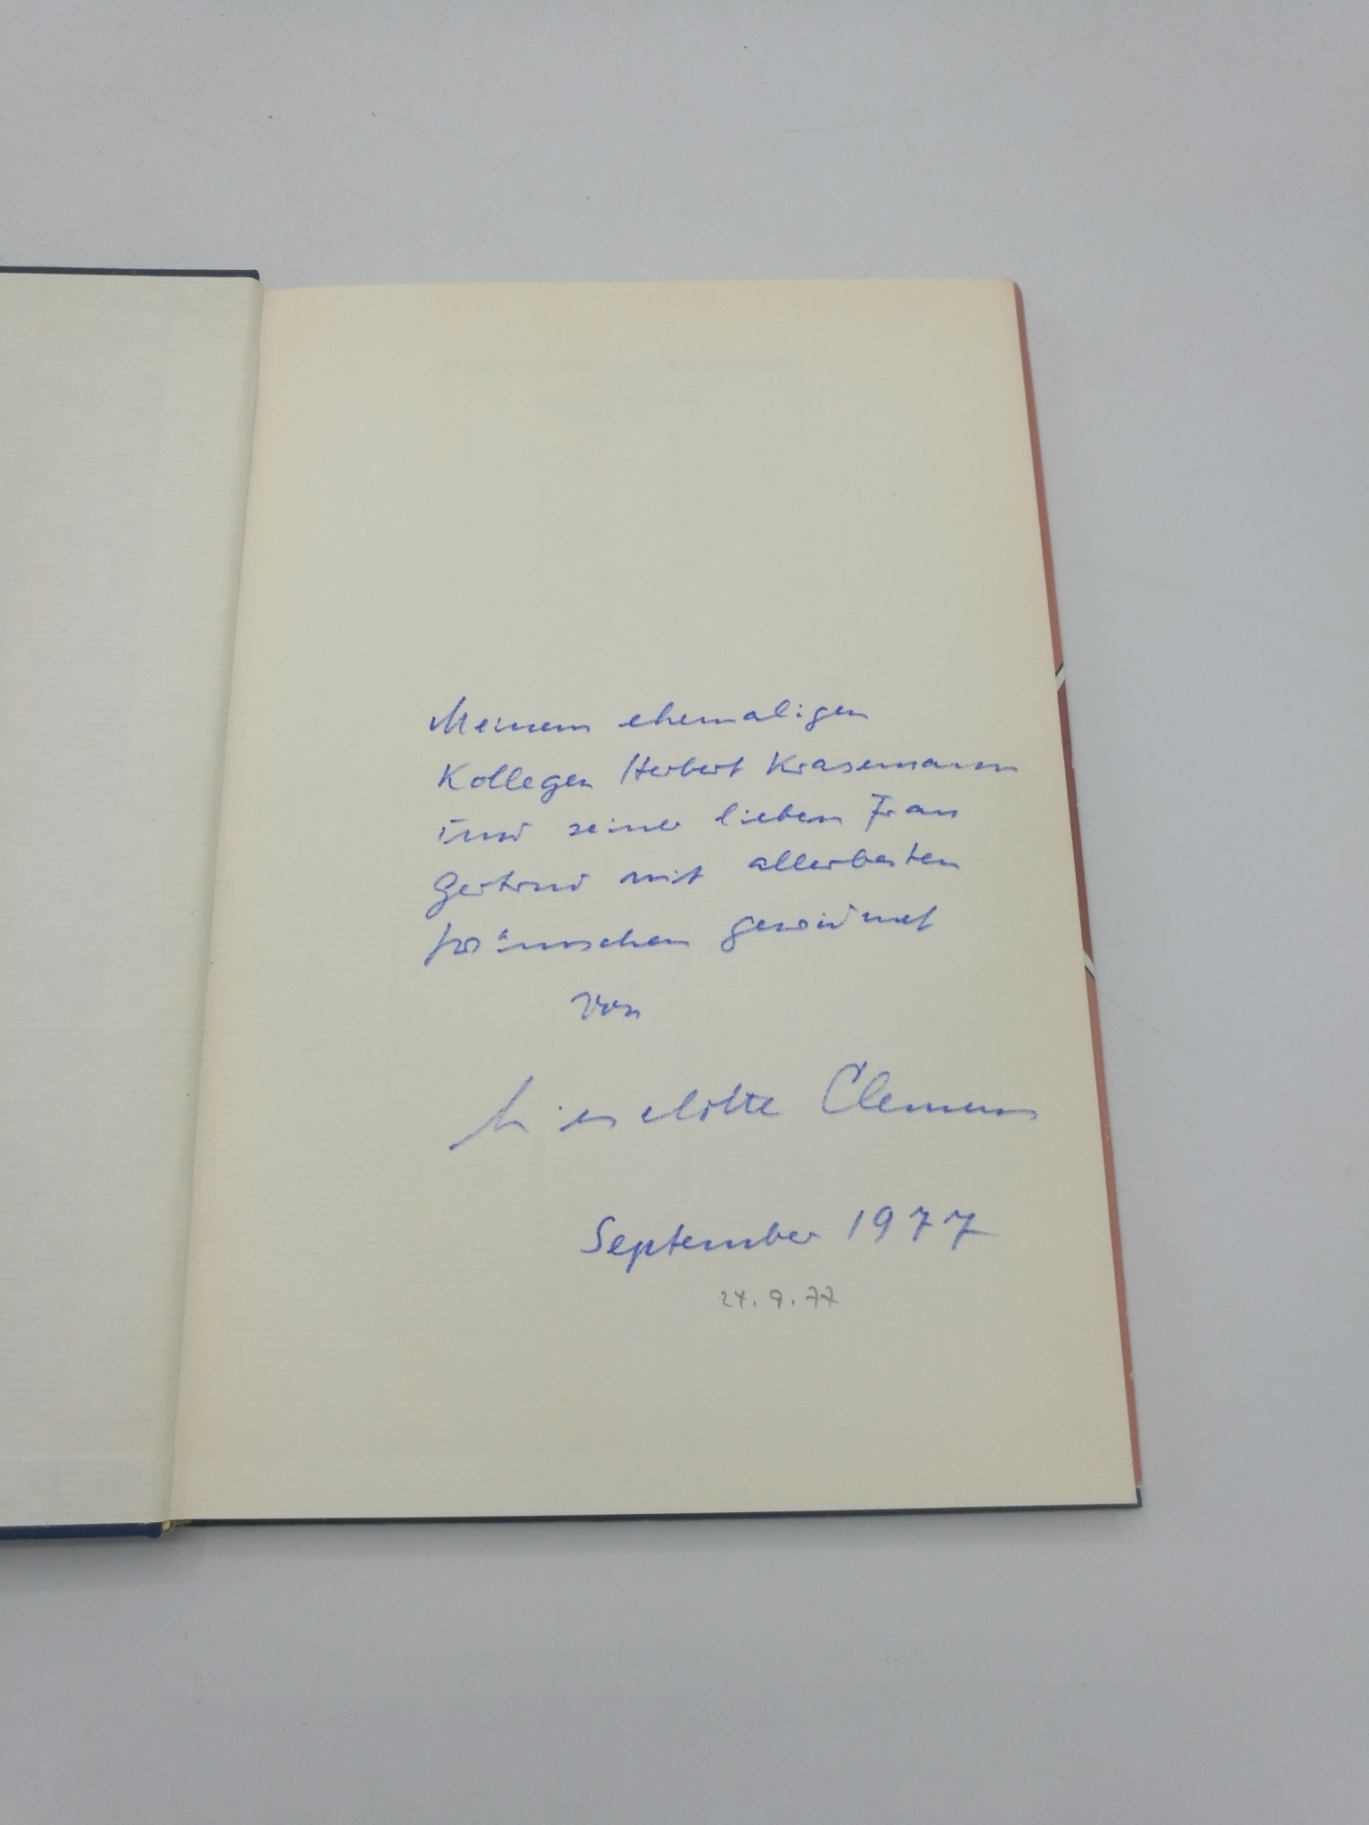 Meinem ehemaligen
Kollegen Herbert Krasemann
und seiner lieben Frau
Gertrud mit allerbesten
Wünschen gewidmet
von
Lieselotte Clemens
September 1977
24.9.77